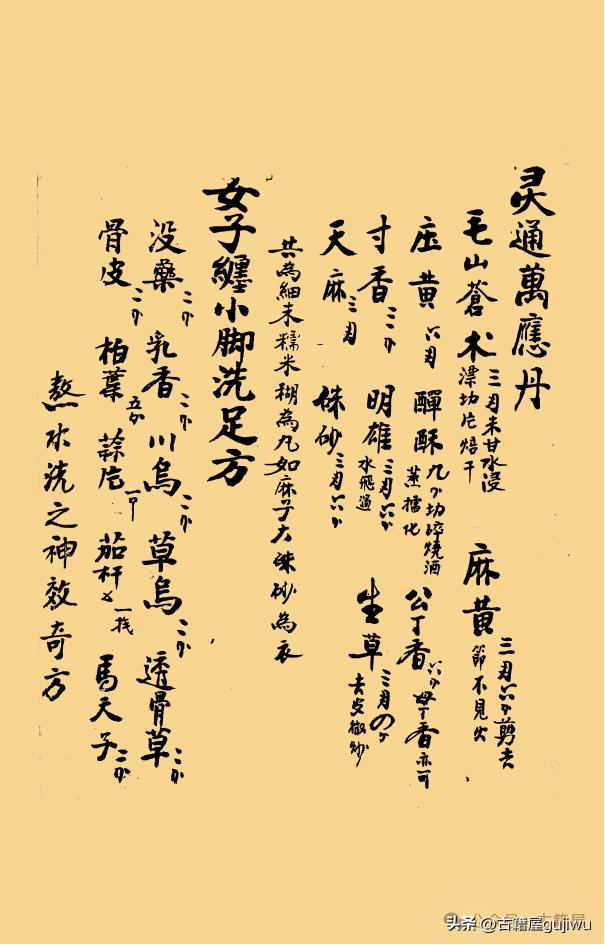 灵通萬應丹
毛山蒼术 三月米甘水浸
漂切片焙干
麻黄 三月六分剪去
節不見火
庒黄 六月
醰酥 九分切碎燒酒
蒸擂化
公丁香 六分 母丁香亦可
寸香 三分
明雄 三月六分
水飛過
生草 三月の分
去皮微炒
天麻 三月
硃砂 三月六分
共為細末糯米糊為凢如麻子大硃砂為衣
女子纏小脚洗足方
没藥 二分 乳香 二分 川烏 二分 草烏 二分 透骨草 二分
骨皮 二分 柏葉 五分 蒜片 茄杆 馬天子 二分
熬水洗之神效奇方
头条 @古籍屋gujiwu